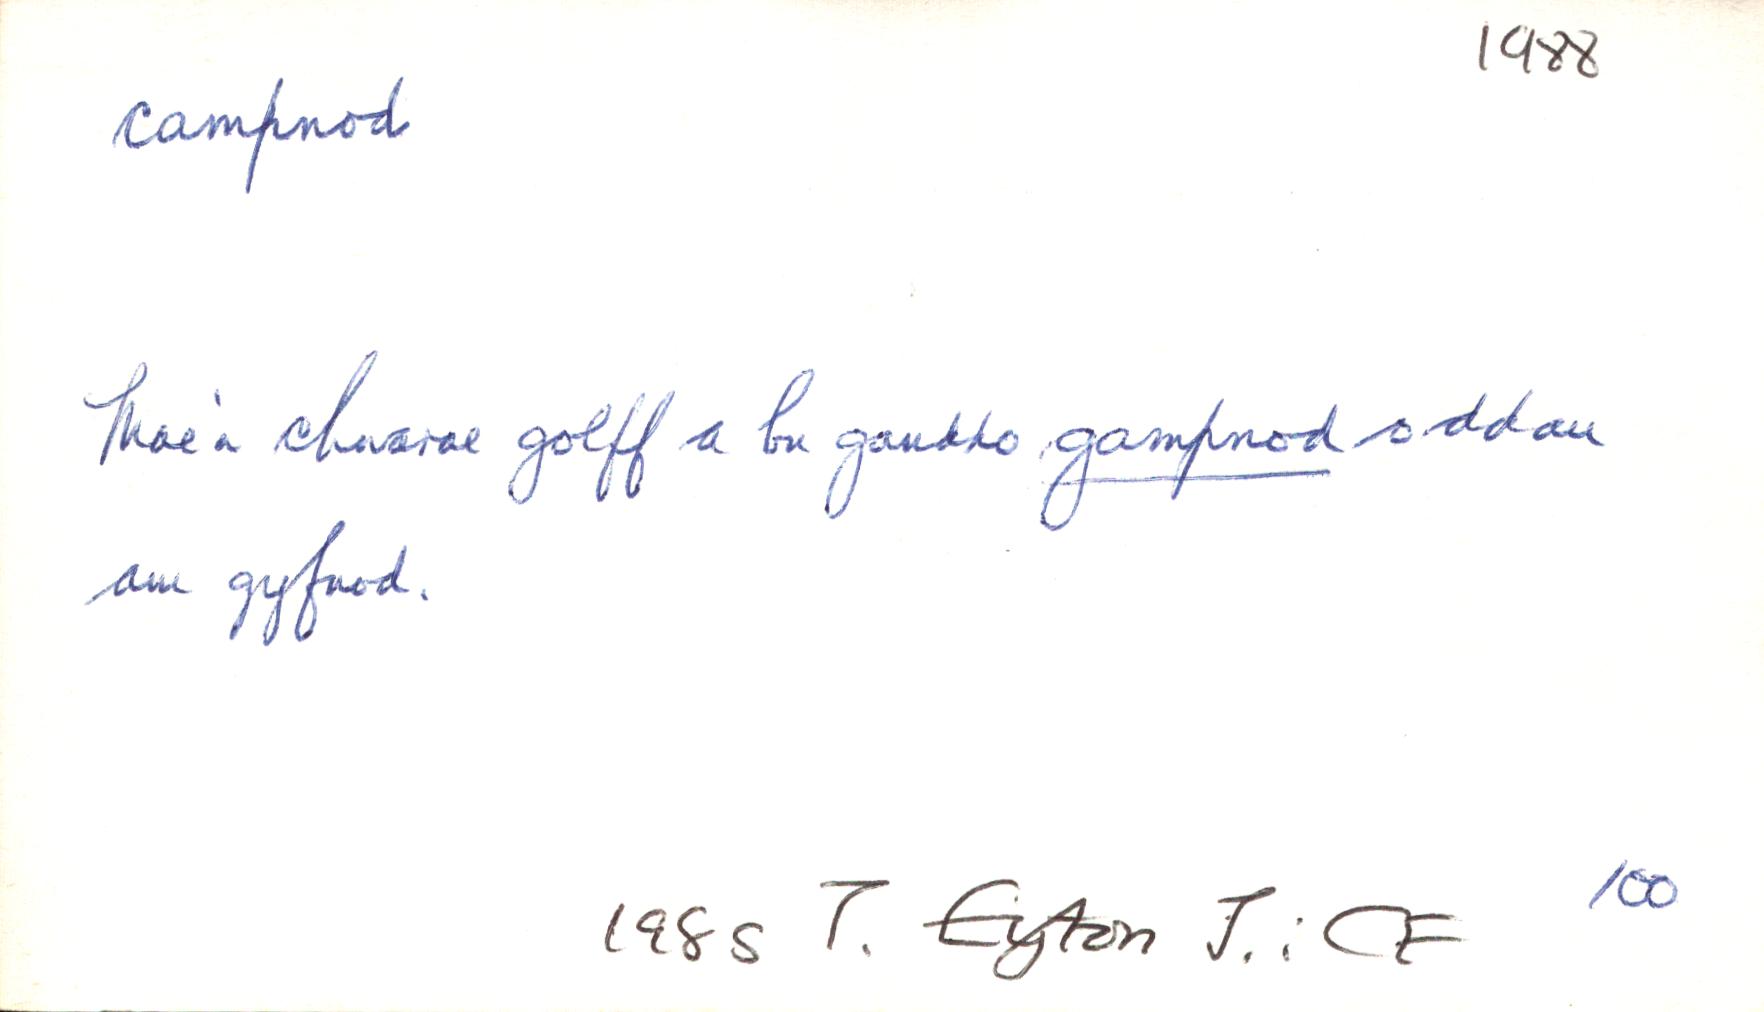 1988
campnod
Mae'n chwarae golff a bu ganddo gampnod o ddau
am gyfnod.
100
1985 T. Eyton J.: CF